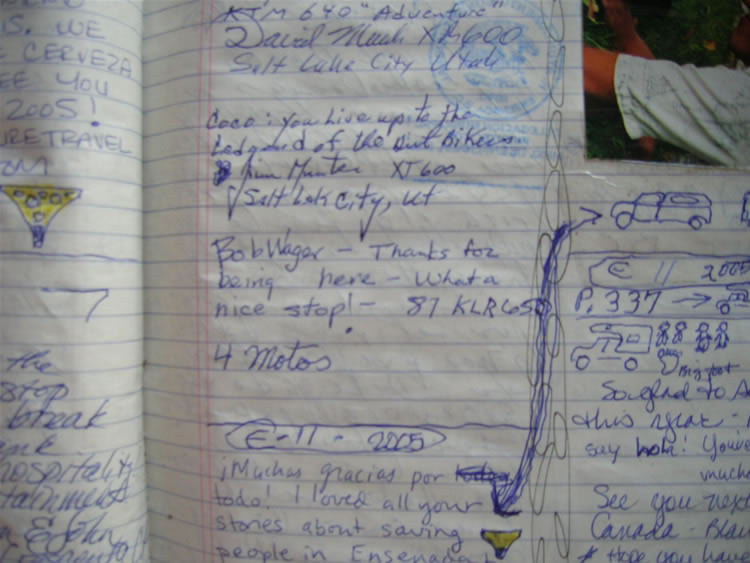 S. WE
CERVEZA
EE YOU
2005!
URETRAVEL
OM
7
the
stop
break
hospitality
tainment
& John
KTM 640 "Adventure"
David Mack XR600
Salt Lake City Utah
Coco: you live up to the
Ledgend of the Dirt Bikers
Jim Hunter XT600
Salt Lak City, Ut
Bob Wager - Thanks for
being here - What a
nice stop! - 87 KLR650
4 Motos
E-11-2005
¡Muchas gracias por
todo! I loved all your
stories about saving
people in Ensenada
E 11 2005
P. 337 →
Big foot
So glad to
this year -
say hola! You've
much
See you next
Canada -
* Hope you have